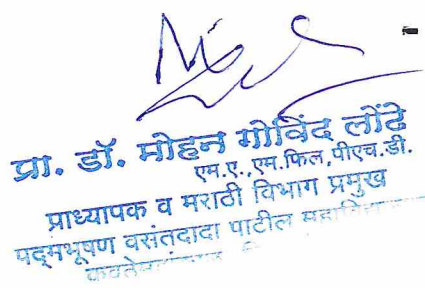 प्रा. डॉ. मोहन गोविंद लोंढे
एम.ए.,एम.फिल,पीएच.डी.
प्राध्यापक व मराठी विभाग प्रमुख
पद्मभूषण वसंतदादा पाटील